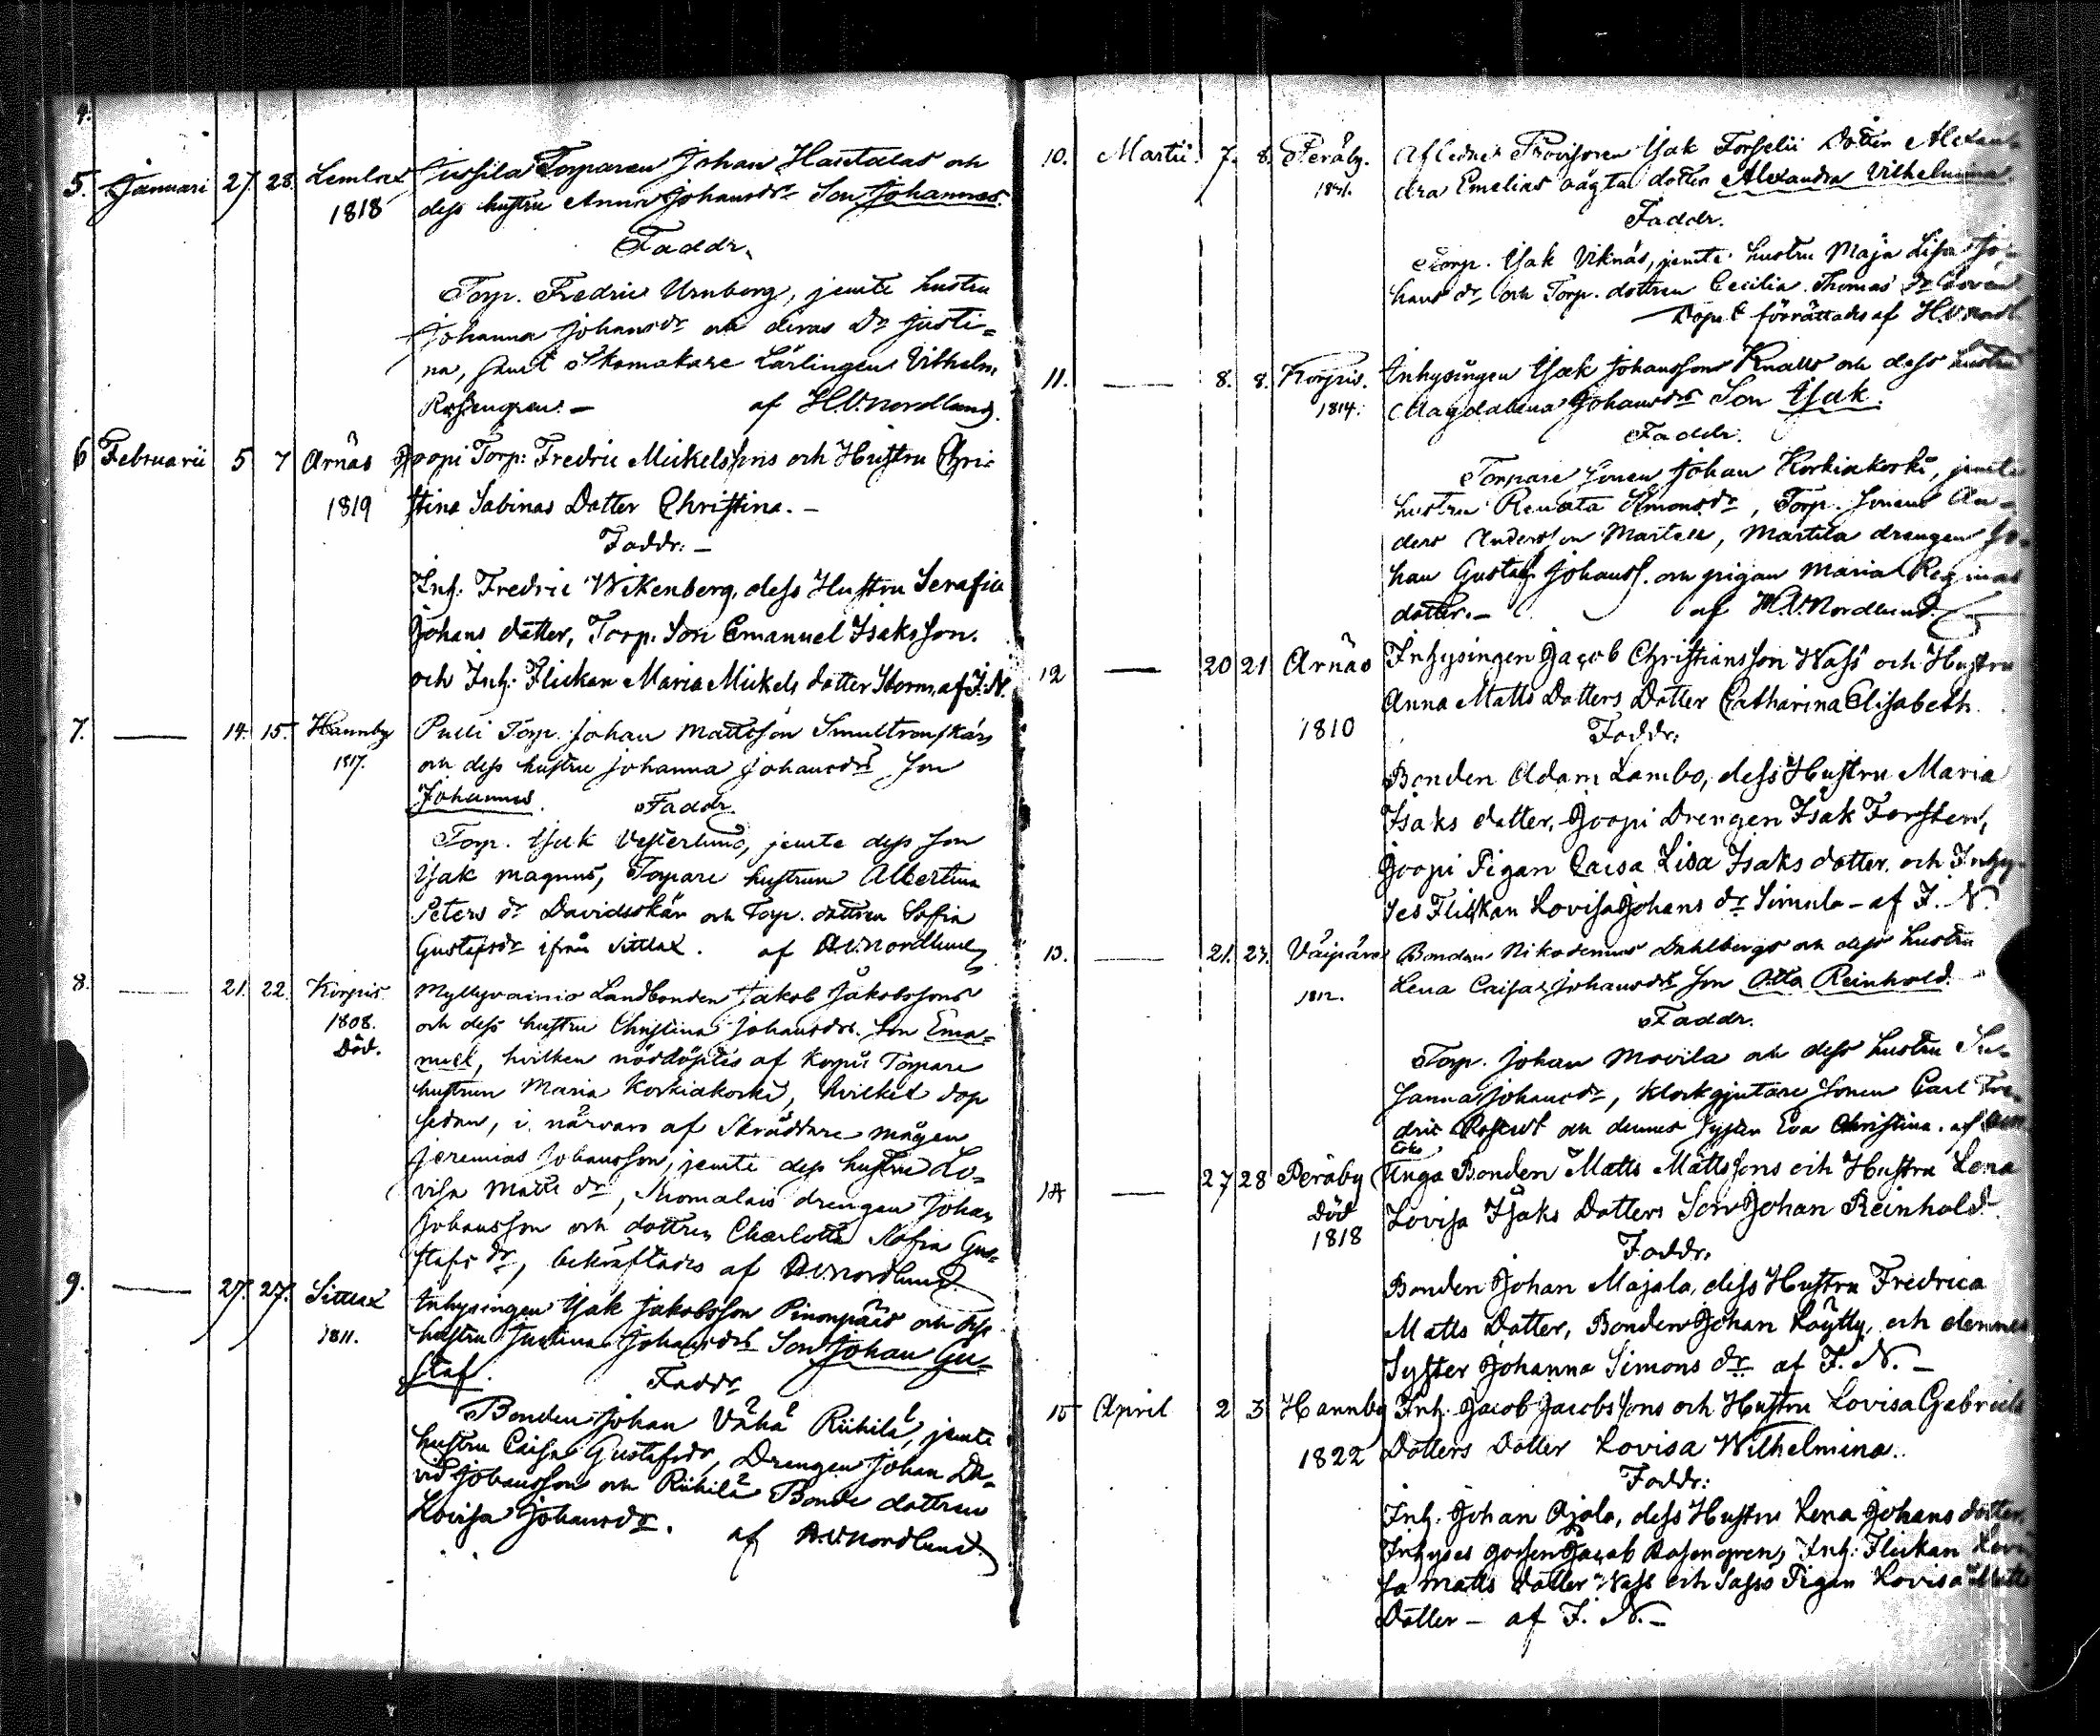 4.
5. Januari 27. 28. Lemlax Jussila Torparen Johan Hantalas och
1818 dess hustru Anna Johansdrs Son Johannes.
Faddr.
Torp. Fredric Urnberg, jemte hustru
Johanna Johansdr och deras Dr Justi=
na, samt Skomakare Lärlingen Vilhelm
Rosengren. — af H.V. Nordlund.
6 Februarii 5 7 Arnäs Joopi Torp: Fredric Mickelssons och Hustru Chri-
1819 stina Sabinas Datter Christina. —
Faddr: —
Inh. Fredric Wikenberg, dess Hustru Serafia
Johans datter, Torp. Son Emanuel Isaksson.
och Inh. Flickan Maria Mickels datter Storm, af J. N.
7. — 14. 15. Hannby Pulli Torp. Johan Mattsson Smultronskärs
1817. och dess hustru Johanna Johansdrs Son
Johannes. Faddr.
Torp. Isak Vesterlund, jemte dess son
Isak Magnus, Torpare hustrun Albertina
Peters dr Davidsskär och Torp. dottren Sofia
Gustafsdr ifrån Sittlax. af H.V. Nordlund
8. — 21. 22. Korpis Myllyvainio Landbonden Jakob Jakobssons
1808. och dess hustru Christina Johansdrs Son Ema=
Död. nuel, hvilken nöddöptes af Korpis Torpare
hustrun Maria Korkiakoski, hvilket dop
sedan, i närvaro af Skräddare mågen
Jeremias Johansson, jemte dess hustru Lo-
visa Matts dr, drengen Johan
Johansson och dottren Charlotta Sofia Gus-
tafs dr, bekräftades af H.V. Nordlund.
9. — 27. 27. Sittlax Inhysingen Isak Jakobsson Pinonpääs och dess
1811. hustru Justina Johansdrs Son Johan Gu=
staf. Faddr
Bonden Johan Vähä Riihilä, jemte
hustru Caisa Gustafsdr, Drengen Johan Da-
vid Johansson och Riihilä Bonde dottren
Lovisa Johansdr. af H.V. Nordlund.
10. Martii 7. 8. Peräby. Afledne Provisoren Isak Forselii Dotter Alexan-
1821. dra Emelias oägta dotter Alexandra Vilhelmina.
Faddr.
Torp. Isak Viknäs, jemte hustru Maja Lisa Jo-
hans dr och Torp. dottren Cecilia Thomas dr
Dopet förrättades af H.V. Nordl.
11. — 8. 8. Korpis. Inhysingen Isak Johanssons Knalls och dess hustru
1814. Magdalena Johansdrs Son Isak.
Faddr.
Torpare Sonen Johan Korkiakoski, jemte
hustru Renata Simonsdr, Torp. Sonen An-
ders Andersson Martela, Martela drengen Jo-
han Gustaf Johanss. och pigan Maria Reginas
dotter. — af H.V. Nordlund.
12 — 20 21 Arnäs Inhysingen Jacob Christiansson Wass och Hustru
Anna Matts Datters Datter Catharina Elisabeth.
1810 Faddr:
Bonden Adam Lambo, dess Hustru Maria
Isaks datter, Joopi Drengen Isak Forsten,
Joopi Pigan Caisa Lisa Isaks datter, och Inhy-
ses Flickan Lovisa Johans dr Simula — af J. N.
13. — 21. 23. Väipärs Bonden Nikodemus Dahlbergs och dess hustru
1812. Lena Caisas Johansdrs Son Otto Reinhold.
Faddr.
Torp. Johan Movila och dess hustru Su-
sanna Johansdr, Klockgjutare Sonen Carl Fre-
dric och dennes Syster Eva Christina. af
14 — 27 28 Peräby Unga Bonden Matts Mattssons och Hustru Lena
Död Lovisa Isaks Datters Son Johan Reinhold.
1818 Faddr.
Bonden Johan Majala, dess Hustru Fredrica
Matts Datter, Bonden Johan Löytty, och dennes
Syster Johanna Simons dr af J. N. —
15 April 2 3 Hannby Inh. Jacob Jacobssons och Hustru Lovisa Gabriels
1822 Datters Datter Lovisa Wilhelmina.
Faddr:
Inh. Johan Ojala, dess Hustru Lena Johans datter,
Inhyses gossen Jacob Rosengren, Inh: Flickan Lovi-
sa Matts datter Wass och Sasss Pigan Lovisa Matts
Datter — af J. N. —